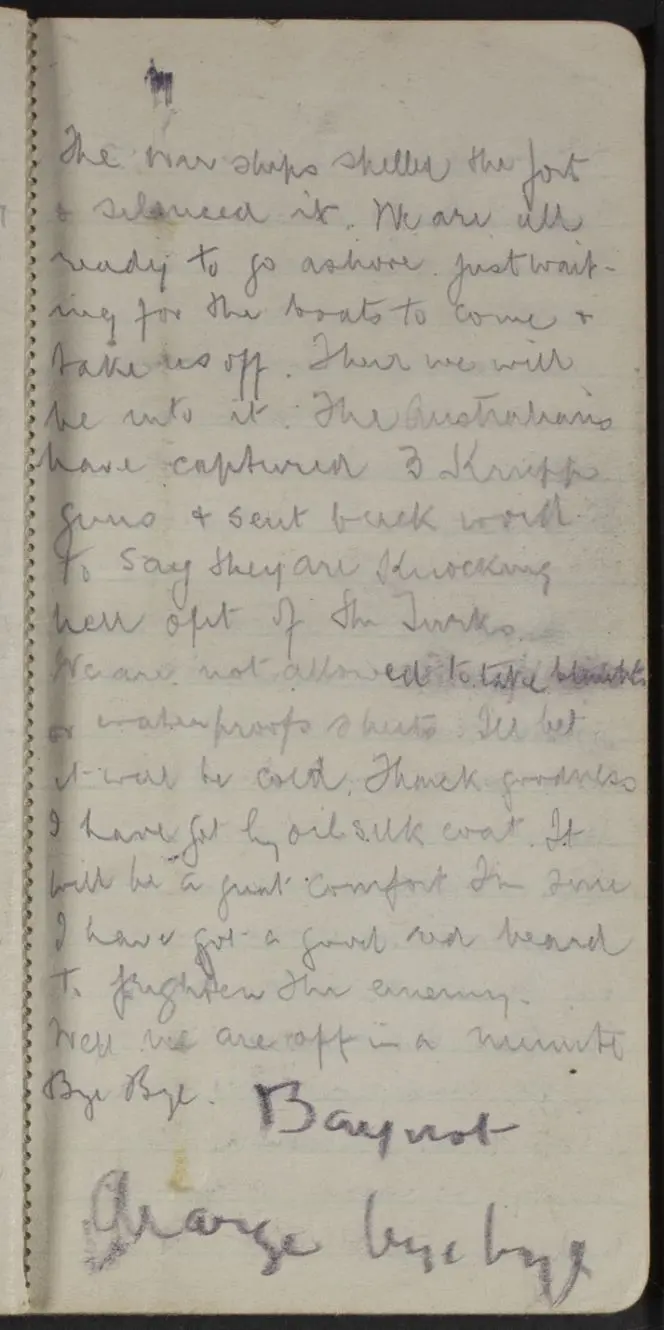 The war ships shelled the fort
& silenced it. We are all
ready to go ashore. just wait-
ing for the boats to come &
take us off. Then we will
be into it. The Australians
have captured 3 Krupp
guns & sent back word
to say they are Knocking
hell out of the Turks.
We are not allowed to take blankets
or waterproofs sheets. Ill bet
it will be cold. Thank goodness
I have got my oil silk coat. It
will be a great comfort Im sure
I have got a good red beard
to frighten the enemy.
Well we are off in a minute
Bye Bye.
George bye bye